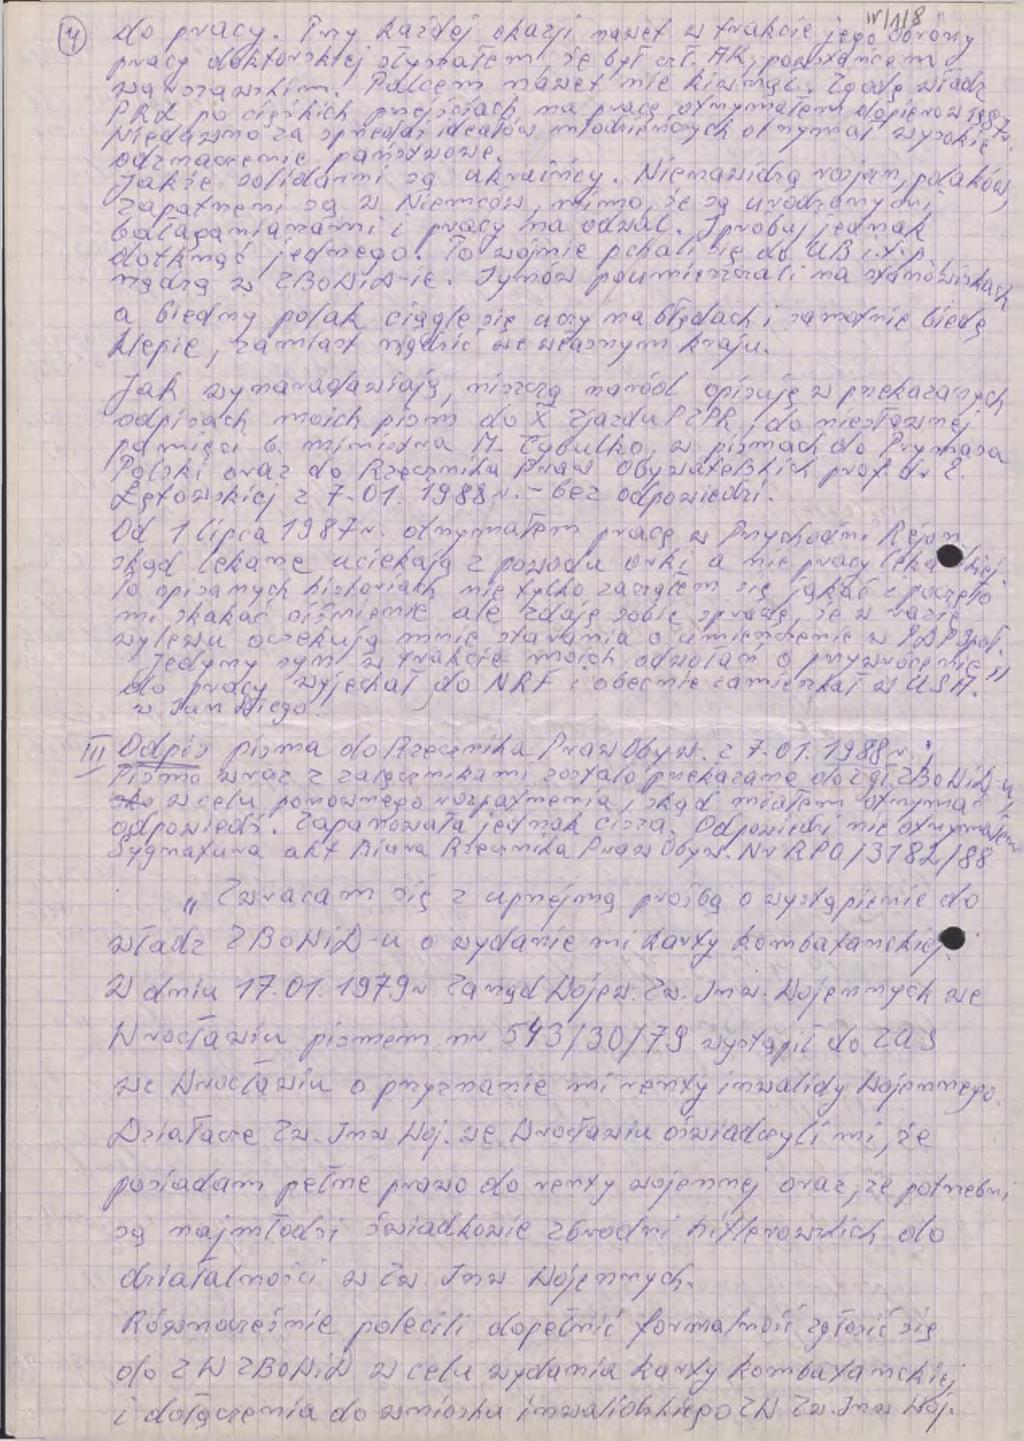 IV/1/8
4 do pracy. Przy każdej okazji nawet w trakcie jego obrony
pracy doktorskiej słyszałem, że był czł. AK, powstańcem
warszawskim. Palcem nawet nie kiwnął. Zgodę władz
PRL po ciężkich przejściach na pracę otrzymałem dopiero w 1987r.
Niedawno za sprzedaż ideałów młodzieńczych otrzymał wysokie
odznaczenie państwowe.
Jakże solidarni są ukraińcy. Nienawidzą rosjan, polaków,
zapatrzeni są w Niemców, mimo, że są urodzonymi
bałaganiarzami i pracy na odwal. Spróbuj jednak
dotknąć jednego. Po wojnie pchali się do UB i.t.p.
rządzą w ZBoWiD-ie. Synów poumieszczali na stanowiskach
a biedny polak ciągle się uczy na błędach i samotnie biedę
klepie, zamiast rządzić we własnym kraju.
Jak wynaradawiają, niszczą naród opisuję w przekazanych
odpisach moich pism do X Zjazdu PZPR, do niesławnej
pamięci b. ministra M. Cybulko, w pismach do Prymasa
Polski oraz do Rzecznika Praw Obywatelskich prof. dr E.
Łętowskiej z 7.01.1988r. – bez odpowiedzi.
Od 1 lipca 1987r. otrzymałem pracę w Przychodni Rejon.
skąd lekarze uciekają z powodu orki a nie pracy
Po opisanych historiach nie tylko zacząłem się jąkać i poczęło
mi skakać ciśnienie ale zdaję sobie sprawę, że w razie
wylewu oczekują mnie starania o umieszczenie w
Jedyny syn w trakcie moich odwołań o przywrócenie
do pracy wyjechał do NRF i obecnie zamieszkał w USA."
w San Diego.
III Odpis pisma do Rzecznika Praw Obyw. z 7.01.1988r.:
Pismo wraz z załącznikami zostało przekazane do ZGł ZBoWiD-u
w celu ponownego rozpatrzenia, skąd miałem otrzymać
odpowiedź. Zapanowała jednak cisza. Odpowiedzi nie otrzymałem
Sygnatura akt Biura Rzecznika Praw Obyw. Nr RPO/3182/88
„Zwracam się z uprzejmą prośbą o wystąpienie do
władz ZBoWiD-u o wydanie mi karty kombatanckiej.
W dniu 17.01.1979r Zarząd Wojew. Zw. Inw. Wojennych we
Wrocławiu pismem nr 543/30/79 wystąpił do ZUS
we Wrocławiu o przyznanie mi renty inwalidy wojennego.
Działacze Zw. Inw Woj. we Wrocławiu oświadczyli mi, że
posiadam pełne prawo do renty wojennej oraz, że potrzebni
są najmłodsi świadkowie zbrodni hitlerowskich do
działalności w Zw. Inw Wojennych.
Równocześnie polecili dopełnić formalność zgłosić się
do ZW ZBoWiD w celu wydania karty kombatanckiej
i dołączenia do wniosku inwalidzkiego ZW Zw. Inw Woj.